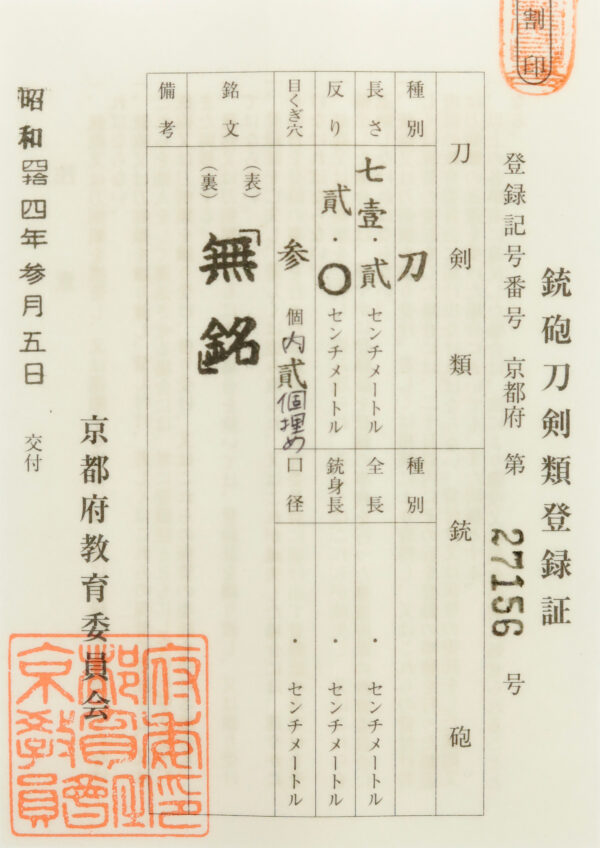 割印
銃砲刀剣類登録証
登録記号番号 京都府 第 27156 号
刀剣類
種別 刀
長さ 七壹.貳センチメートル
反り 貳.〇センチメートル
目くぎ穴 参個内貳個埋め
銘文
(表)「無銘」
(裏)
備考
銃砲
種別
全長 .センチメートル
銃身長 .センチメートル
口径 .センチメートル
京都府教育委員会
昭和四拾四年参月五日 交付